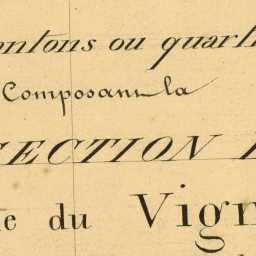 Cantons ou quart
Composant la
SECTION
du Vign